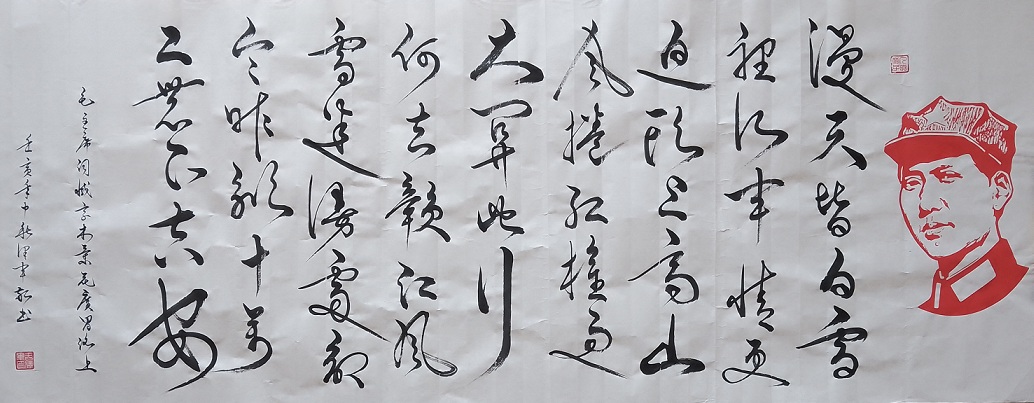 漫天皆白雪
裡行军情更
迫头上高山
风捲红旗过
大关此行
何去赣江风
雪迷漫处命
令昨颁十万
工农下吉安
毛主席词减字木兰花广昌路上
年中秋 书